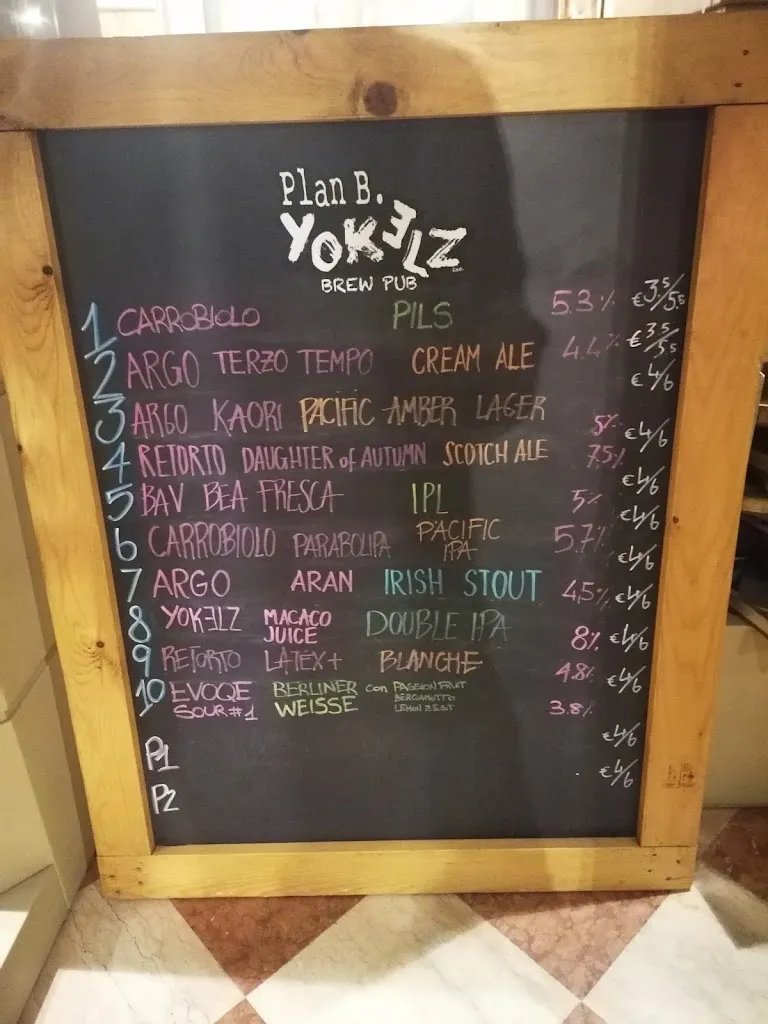 Plan B.
YOKELZ
BREW PUB
1 CARROBIOLO PILS 5.3% €3.5/5.5
2 ARGO TERZO TEMPO CREAM ALE 4.4% €3.5/5.5
3 ARGO KAORI PACIFIC AMBER LAGER 5% €4/6
4 RETORTO DAUGHTER of AUTUMN SCOTCH ALE 7.5% €4/6
5 BAV BEA FRESCA IPL 5% €4/6
6 CARROBIOLO PARABOLIPA PACIFIC IPA 5.7% €4/6
7 ARGO ARAN IRISH STOUT 4,5% €4/6
8 YOKELZ MACACO JUICE DOUBLE IPA 8% €4/6
9 RETORTO LATEX+ BLANCHE 4.8% €4/6
10 EVOQE SOUR #1 BERLINER WEISSE con PASSION FRUIT BERGAMOTTO LEMON ZEST 3.8% €4/6
P1 €4/6
P2 €4/6